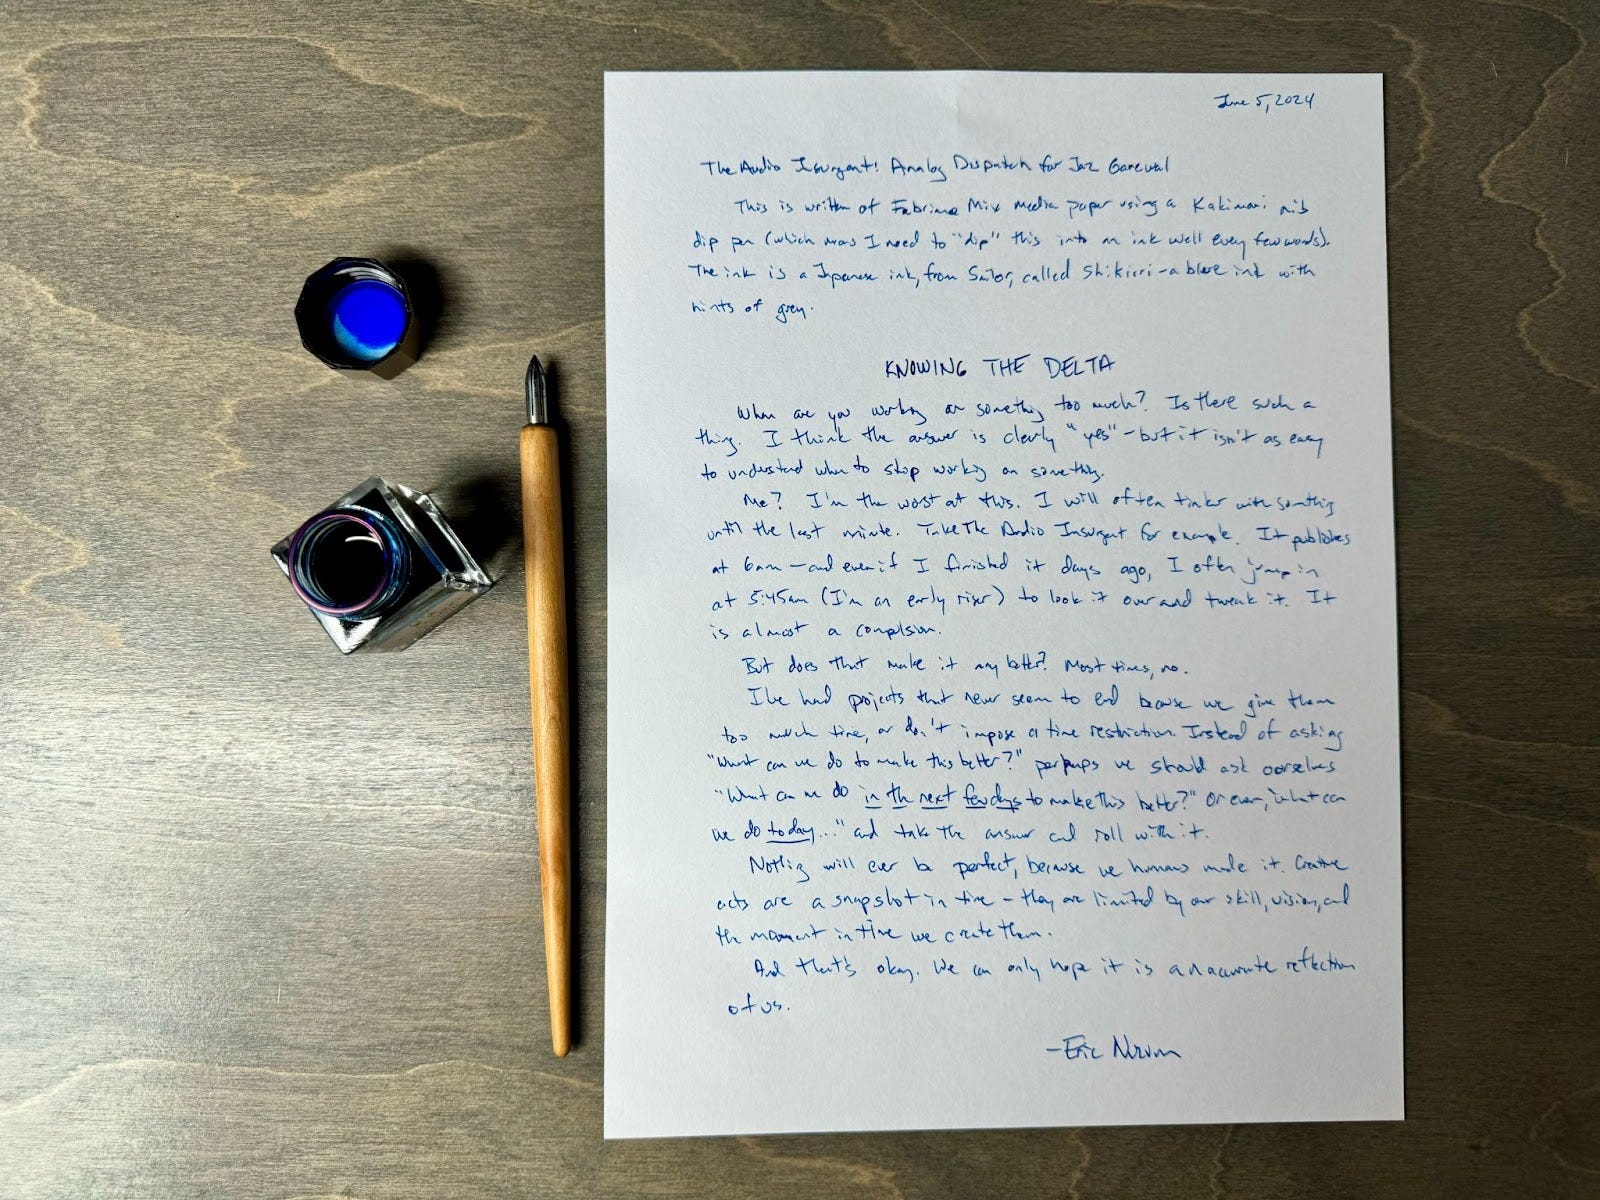 June 5, 2024
The Audio Insurgent: Analog Dispatch for Jaz Garewal
This is written of Fabriano Mix Media paper using a Kakimori nib
dip pen (which means I need to "dip" this into an ink well every few words).
The ink is a Japanese ink, from Sailor, called Shikiori - a blue ink with
hints of grey.
KNOWING THE DELTA
When are you working on something too much? Is there such a
thing. I think the answer is clearly "yes" - but it isn't as easy
to understand when to stop working on something.
Me? I'm the worst at this. I will often tinker with something
until the last minute. Take The Audio Insurgent for example. It publishes
at 6am - and even if I finished it days ago, I often jump in
at 5:45am (I'm an early riser) to look it over and tweak it. It
is almost a compulsion.
But does that make it any better? Most times, no.
I've had projects that never seem to end because we give them
too much time, or don't impose a time restriction. Instead of asking
"What can we do to make this better?" perhaps we should ask ourselves
"What can we do in the next few days to make this better?" Or even, "what can
we do today..." and take the answer and roll with it.
Nothing will ever be perfect, because we humans made it. Creative
acts are a snapshot in time - they are limited by our skill, vision, and
the moment in time we create them.
And that's okay. We can only hope it is an accurate reflection
of us.
- Eric Nuzum